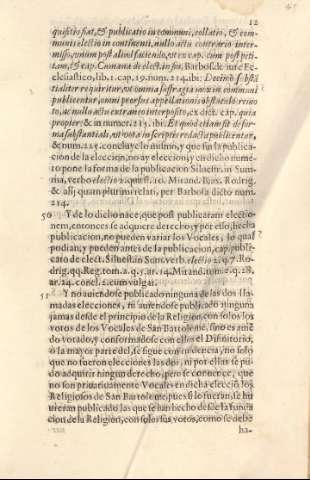 12
quisitio fiat, & publicatio in communi, collatio, & com-
munis electio in continenti, nullo actu contrario inter-
misso, unius post alios faciendo, ut ex cap. cum post peti-
tam, & cap. Cumana de electio. fin, Barbosa de iure Ec-
clesiastico, lib. 1. cap. 19. num. 214. ibi: substã
tialiter requiritur, ut omnia suffragia mox in communi
publicentur, omni prorsus appellationis obstaculo remo
to, ac nullo actu extraneo interposito, ex dict. cap. quia
propter: & in numer. 215. ibi: Et quod etiam sit de for-
ma substantiali, ut vota in scriptis redacta publicentur,
& num. 225. concluye lo mismo, y que sin la publica-
cion de la eleccion, no ay eleccion, y en dicho nume-
ro pone la forma de publicacion Silvestr. in Sum-
ma, verbo electio 2. quæst. 16. Mirand. Rodrig.
& alij quam plurimi relati, per Barbosa dicto num.
214.
50 Y de lo dicho nace, que post publicatam electio-
nem, entonces se adquiere derecho, y por esso, hecha
publicacion, no pueden variar los Vocales, lo qual
podian, y pueden antes de la publicacion, cap. publi-
cato de elect. Silvest. in Sum. verb. electio 2. q. 7. Ro-
drig. qq. Reg. tom. 2. q. 5. ar. 14. Mirand. tom. 2. q. 28.
ar. 24. concl. 2. cum vulgat.
51 Y no auiendose publicado ninguna de las dos lla-
madas elecciones, ni auiendose publicado ninguna
jamas desde el principio de la Religion, con solos los
votos de los Vocales de San Bartolome, sino es auiẽ
do votado, y conformadose con ellos el Difinitorio,
ò la mayor parte del, se sigue con euidencia, no solo
que no fueron elecciones las dos, ni por ellas se pu-
do adquirir ningun derecho, pero se conuence, que
no son priuatiuamente Vocales en dicha eleccion los
Religiosos de San Bartolome, pues si lo fueran, se hu
uieran publicado las que se han hecho desde la funda
cion de la Religion, con solos sus votos, como se debe
ha-